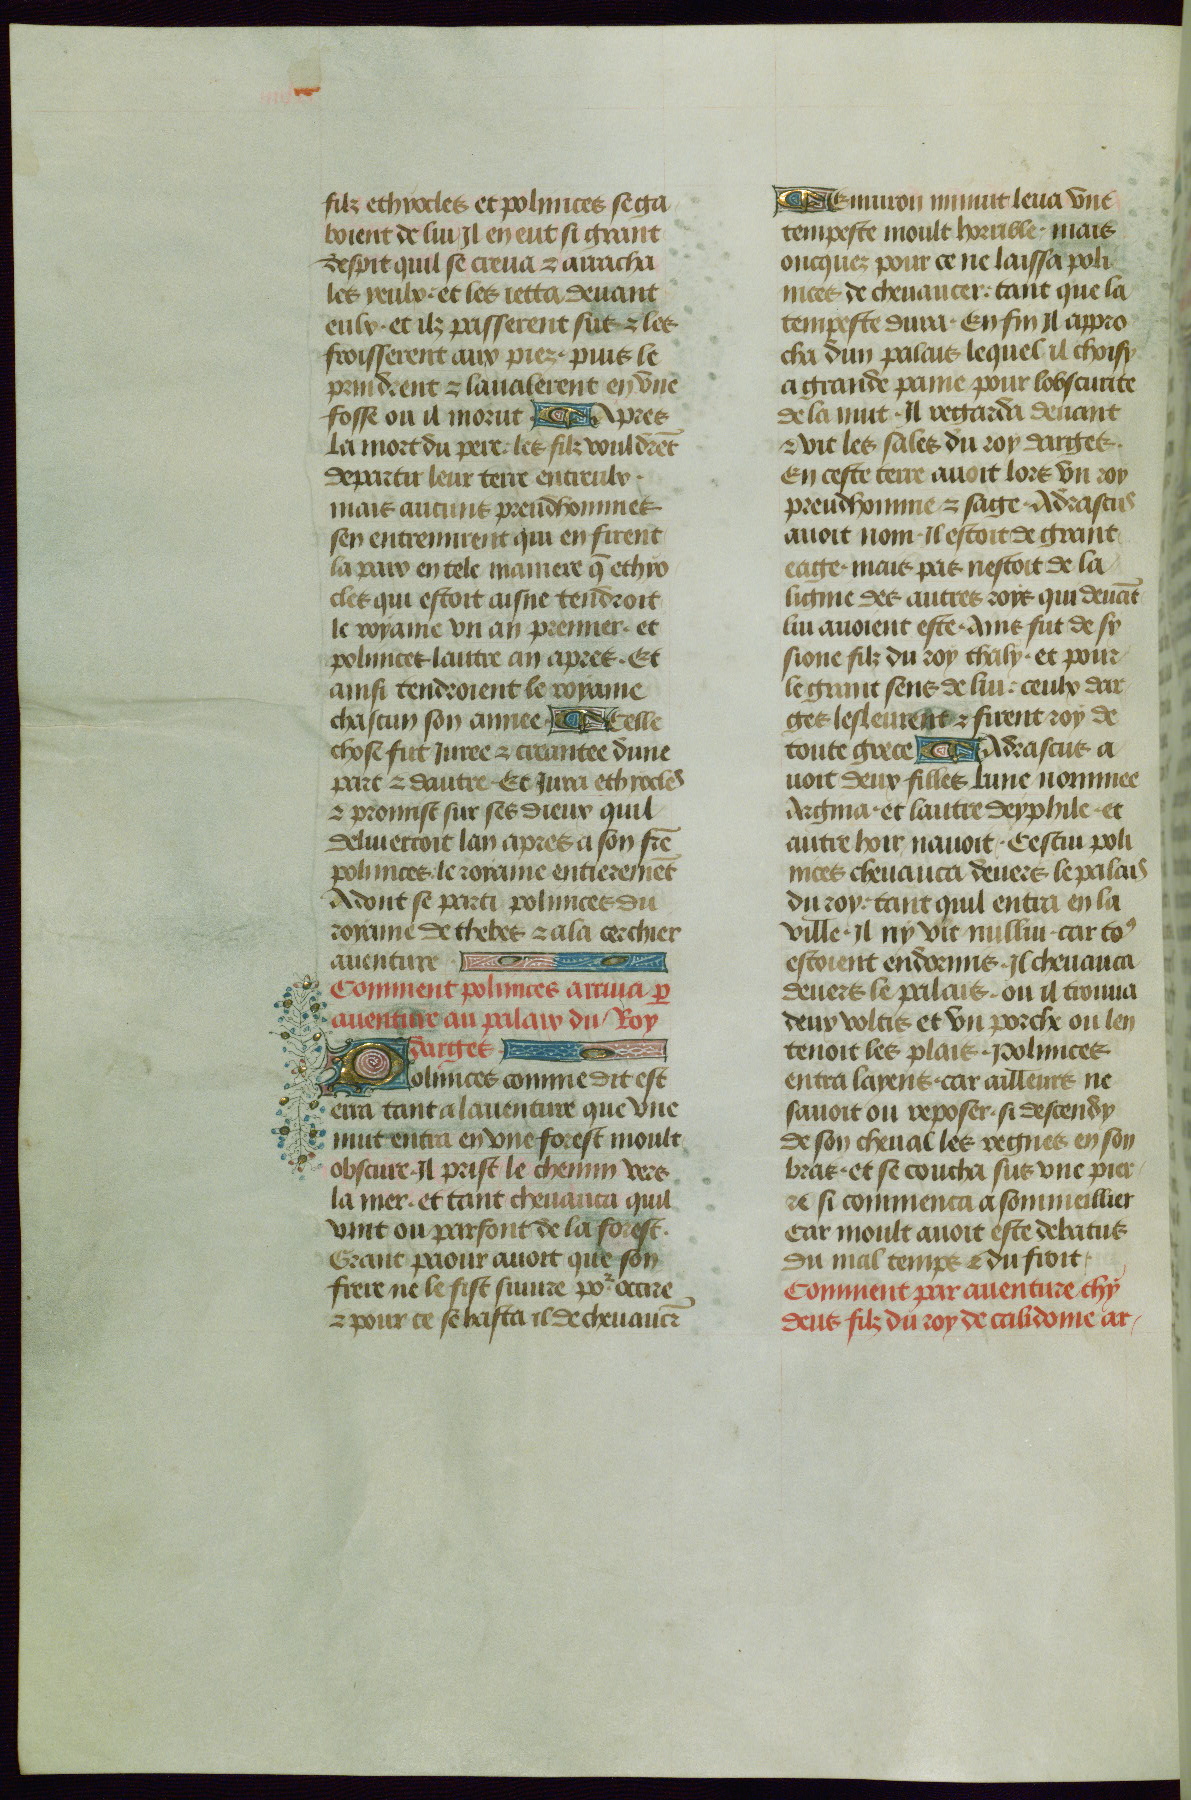 filz ethyocles et polinices se ga
boient de lui Il en eut si grant
despit quil se creua ⁊ arracha
les yeulx· et les ietta deuant
eulx· et ilz passerent sus ⁊ les
froisserent aux piez· puis le
prindrent ⁊ laualerent en vne
fosse ou il morut Apres
La mort du pere· les filz vouldrēt
departir leur terre entreulx·
mais aucuns preudhommes
sen entremirent qui en firent
la paix en tele maniere q̄ ethyo
cles qui estoit aisne tendroit
le royaume vn an premier· et
polinices lautre an apres· Et
ainsi tendroient le royame
chascun son annee· Ceste
chose fut Juree ⁊ creantee dune
part ⁊ dautre· Et Jura ethyocles
⁊ promist sur ses dieux quil
deliuerroit lan apres a son frē
polinices· le royaume entieremēt
Adont se parti polinices du
royaume de thebes ⁊ ala cerchier
auenture
Comment polinices arriua ꝑ
auenture au palaix du Roy
darges
Polinices comme dit est
erra tant a lauenture que vne
nuit entra en vne forest moult
obscure· Il prist le chemin vers
la mer· et tant cheuauca quil
vint ou parfont de la forest·
Grant paour auoit que son
frere ne le fist suiure por occire
⁊ pour ce se hasta il de cheuaucr̄
Enuiron minuit leua vne
tempeste moult horrible· mais
oncquez pour ce ne laissa poli
nices de cheuaucer· tant que la
tempeste dura· En fin Il appro
cha dun palais lequel il choisy
a grande paine pour lobscurite
de la nuit· Il regarda deuant
⁊ vit les sales du roy darges·
En ceste terre auoit lors vn roy
preudhomme ⁊ sage· Adrascus
auoit nom· Il estoit de grant
eage· mais pas nestoit de la
lignie des autres roys qui deuāt
lui auoient este· Ains fut de sy
sione filz du roy thaly· et pour
le grant sens de lui· ceulx dar
ges lesleurent ⁊ firent roy de
toute grece Adrascus a
uoit deux filles lune nommee
Argina· et lautre deyphile· et
autre hoir nauoit· Cestui poli
nices cheuauca deuers le palais
du roy· tant quil entra en la
ville· Il ny vit nullui· car toꝰ
estoient endormis· Il cheuauca
deuers le palais· ou il trouua
deux voltis et vn porche ou len
tenoit les plais· Polinices
entra layens· car ailleurs ne
sauoit ou reposer· si descendy
de son cheual les regnes en son
bras· et se coucha sus vne pier
re si commenca a sommeillier
Car moult auoit este debatus
du mal temps ⁊ du froit·
Comment par auenture thy
deus filz du roy de calidome ar